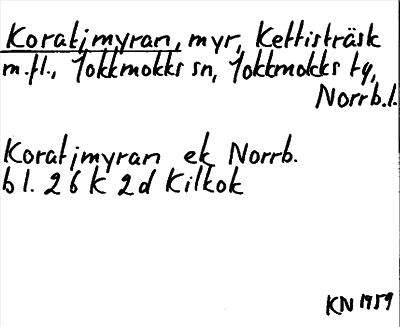 Koratjmyran, myr, Kettisträsk
m.fl., Jokkmokks sn, Jokkmokks ty,
Norrb.l.
Koratjmyran ek Norrb.
bl. 26 K 2d Kilkok
KN 1959